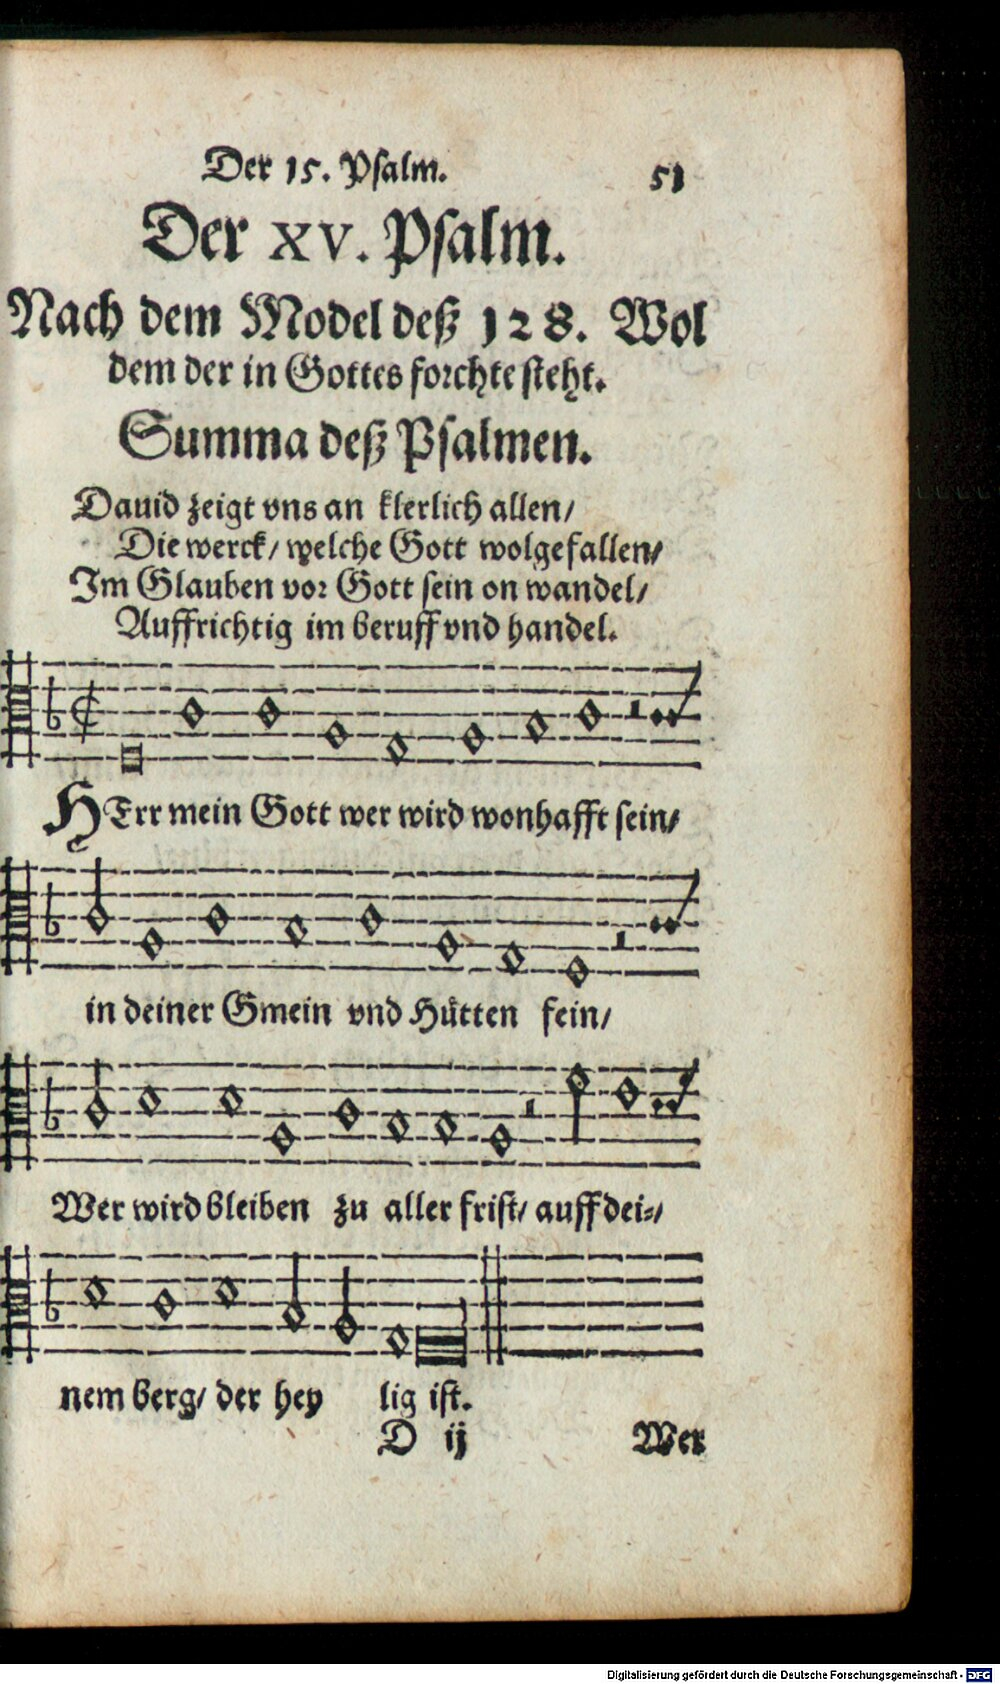 Der 15. Psalm. 51
Der XV. Psalm.
Nach dem Model deß 128. Wol
dem der in Gottes forchte steht.
Summa deß Psalmen.
Dauid zeigt vns an klerlich allen/
Die werck/ welche Gott wolgefallen/
Im Glauben vor Gott sein on wandel/
Auffrichtig im beruff vnd handel.
HErr mein Gott wer wird wonhafft sein/
in deiner Gmein vnd Hütten fein/
Wer wird bleiben zu aller frist/ auff dei=/
nem berg/ der hey lig ist.
D ij Wer
Digitalisierung gefördert durch die Deutsche Forschungsgemeinschaft - DFG